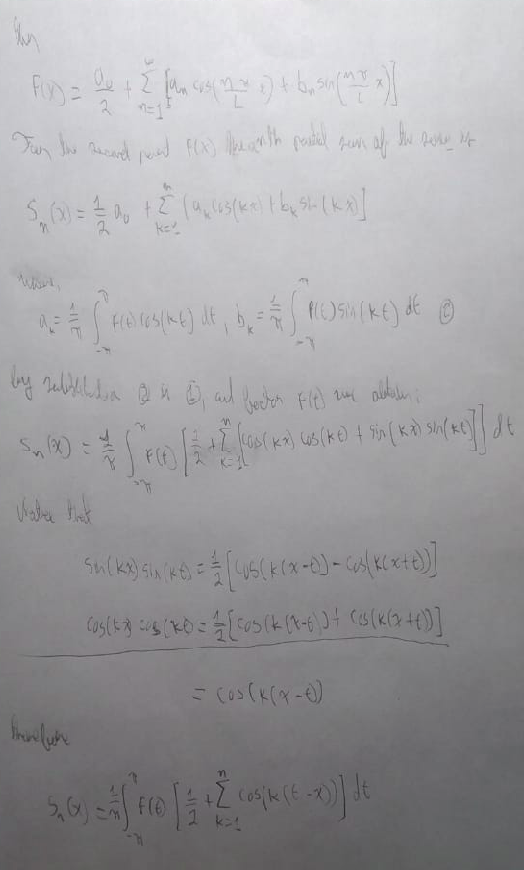 F(x) = a₀/2 + ∑_{n=1}^{∞} [aₙ cos(nπ/L x) + bₙ sin(nπ/L x)]
For the second part F(x) the nth partial sum of the series is
Sₙ(x) = 1/2 a₀ + ∑_{k=1}^{n} [aₖ cos(kx) + bₖ sin(kx)]
where,
aₖ = 1/π ∫_{-π}^{π} F(t) cos(kt) dt, bₖ = 1/π ∫_{-π}^{π} F(t) sin(kt) dt ②
by substitution ② in ①, and factor F(t) we obtain;
Sₙ(x) = 1/π ∫_{-π}^{π} F(t) [1/2 + ∑_{k=1}^{n} [cos(kx) cos(kt) + sin(kx) sin(kt)]] dt
Notice that
sin(kx) sin(kt) = 1/2 [cos(k(x-t)) - cos(k(x+t))]
cos(kx) cos(kt) = 1/2 [cos(k(x-t)) + cos(k(x+t))]
= cos(k(x-t))
therefore
Sₙ(x) = 1/π ∫_{-π}^{π} F(t) [1/2 + ∑_{k=1}^{n} cos(k(t-x))] dt